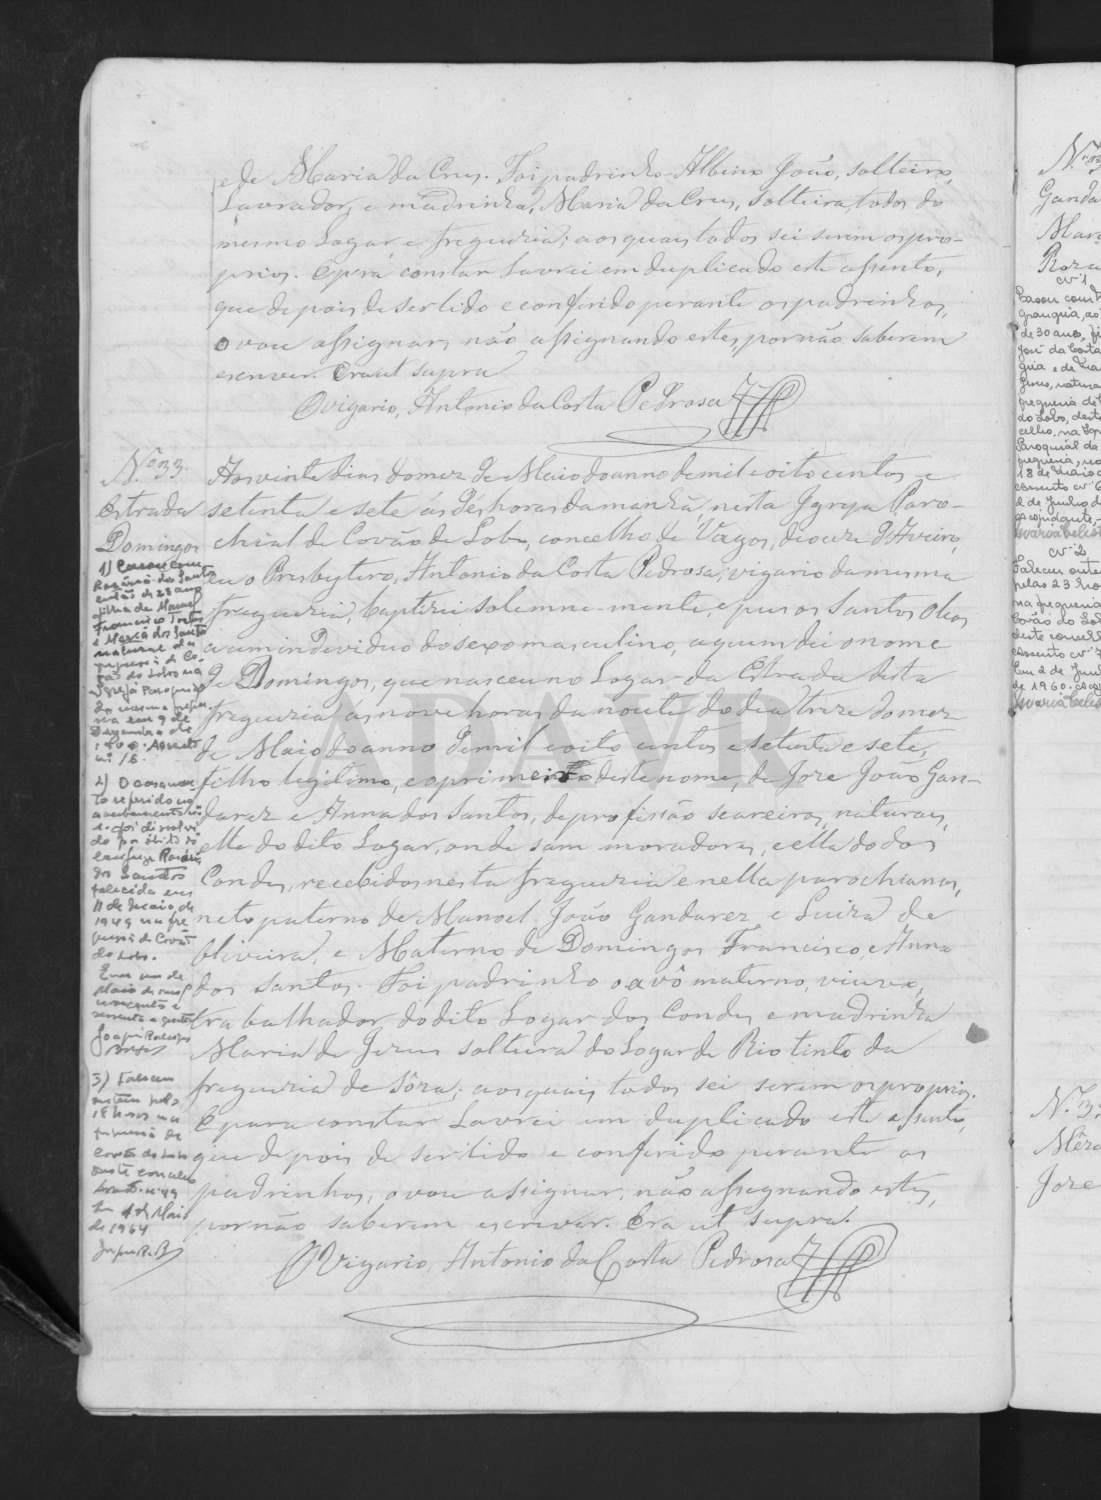 e de Maria da Crus. Foi padrinho Albino João, solteiro,
Lavrador, e madrinha, Maria da Crus, solteira, todos do
mesmo Logar e freguezia; aos quaes todos sei serem os pro-
prios. E para constar Lavrei em duplicado este assento,
que depois de ser lido e conferido perante os padrinhos,
o vou assignar, não assignando estes, por não saberem
escrever. Era ut supra
O vigario, Antonio da Costa Pedrosa
Nº 33
Estrada
Domingos
Aos vinte dias do mez de Maio do anno de mil e oito centos e
setenta e sete ás dés horas da manhã, nesta Igreja Paro-
chial de Covão de Lobo, concelho de Vagos, diocese d'Aveiro,
eu o Presbytero, Antonio da Costa Pedrosa, vigario da mesma
freguezia, baptizei solemne-mente, e pus os Santos Oleos
a um individuo do sexo masculino, a quem dei o nome
de Domingos, que nasceu no Logar da Estrada desta
freguezia as nove horas da noute do dia treze do mez
de Maio do anno de mil e oito centos e setenta e sete,
filho legitimo, e o primeiro deste nome, de Jose João Gan-
darez e Anna dos Santos, de profissão seareiros, naturaes,
elle do dito Logar, onde sam moradores, e ella do dos
Condes, recebidos nesta freguezia e nella parochianos,
neto paterno de Manoel João Gandarez e Luiza de
Oliveira, e Materno de Domingos Francisco, e Anna
dos Santos. Foi padrinho o avô materno, viuvo,
trabalhador do dito Logar dos Condes e madrinha
Maria de Jesus solteira do Logar de Rio tinto da
freguezia de Sôza; aos quaes todos sei serem os proprios.
E para constar Lavrei em duplicado este assento,
que depois de ser lido e conferido perante os
padrinhos, o vou assignar, não assignando estes,
por não saberem escrever. Era ut supra.
O Vigario, Antonio da Costa Pedrosa
1) Casou com
Rosária dos Santos
filha de Manuel
Francisco
e Maria dos Santos
natural da
freguesia de Co-
vão do Lobo na
Igreja Paroquial
da mesma fregue-
sia em 9 de
Dezembro de
2) O casamen-
to referido no
averbamento nº
1 foi dissolvi-
do por óbito do
conjuge Rosária
dos Santos
falecida em
11 de Maio de
1949 na fre-
guesia de Covão
do Lobo.
3) Faleceu
18 horas na
freguesia de
Covão do Lobo
deste concelho
em 4 de Maio
de 1964
ADAVR
Nº 3
Ganda
Mar
Roza
nº 1
Casou com
de 30 anos, fi
José da Costa
Jesus, natura
freguesia de
do Lobo, deste
celho, na Igre
Paroquial da
freguesia, no
18 de Março
assento nº 6
2 de Junho d
Maria Celes
nº 2
Faleceu onte
pelas 23 hor
na freguesia
Covão do Lob
deste concelh
assento nº 7
Em 2 de Junh
de 1960.
Maria Celes
Nº 3
Jose